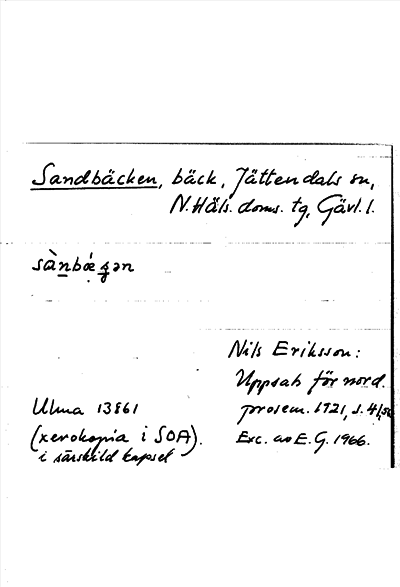 Sandbäcken, bäck, Jättendals sn,
N. Häls. doms. tg, Gävl. l.
sàn̲bǽgən
Nils Eriksson:
Uppsats för nord.
prosem. 1921, s. 41,
Ulma 13861
(xerokopia i SOA).
i särskild kapsel
Exc. av E. G. 1966.